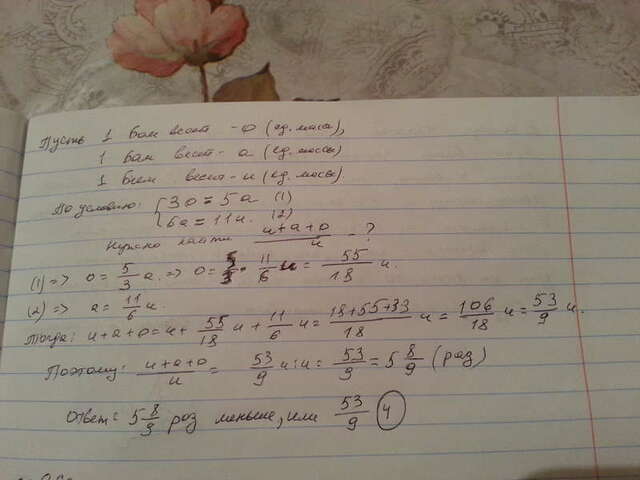 Пусть 1 Бом весит - о (ед. массы),
1 Бам весит - а (ед. массы)
1 Бим весит - и (ед. массы)
По условию: { 3о = 5а (1)
6а = 11и. (2)
Нужно найти (и+а+о)/и - ?
(1) => о = 5/3 а. => о = 5/3 · 11/6 и = 55/18 и.
(2) => а = 11/6 и.
Тогда: и+а+о = и + 55/18 и + 11/6 и = (18+55+33)/18 и = 106/18 и = 53/9 и.
Поэтому: (и+а+о)/и = 53/9 и : и = 53/9 = 5 8/9 (раз)
Ответ: 5 8/9 раз меньше, или 53/9 4